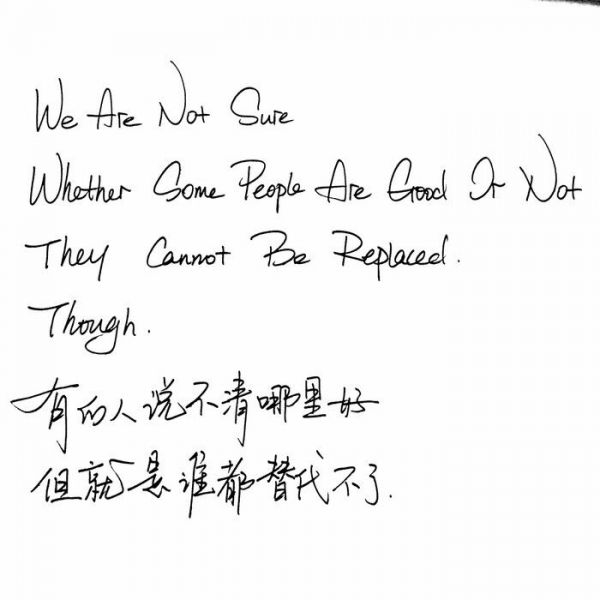 We Are Not Sure
Whether Some People Are Good Or Not
They Cannot Be Replaced.
Though.
有的人说不清哪里好
但就是谁都替代不了.